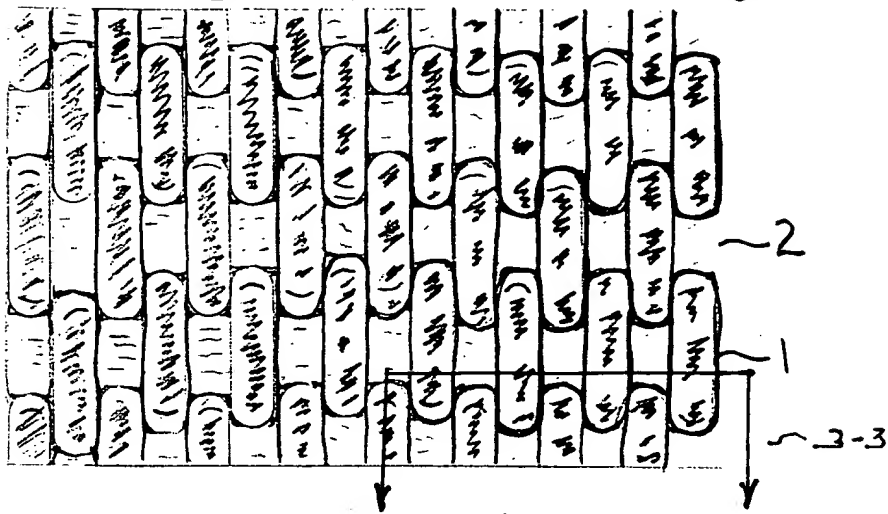 2
1
3-3